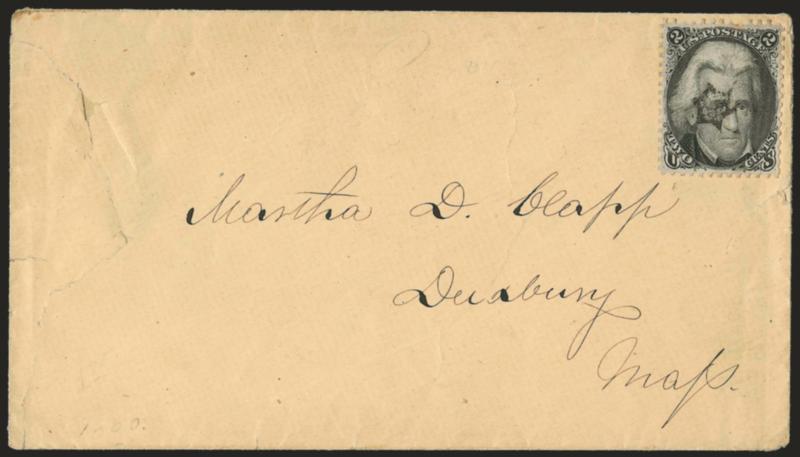 2 U.S. POSTAGE 2
TWO CENTS
Martha D. Clapp
Duxbury
Mass.
1-00.